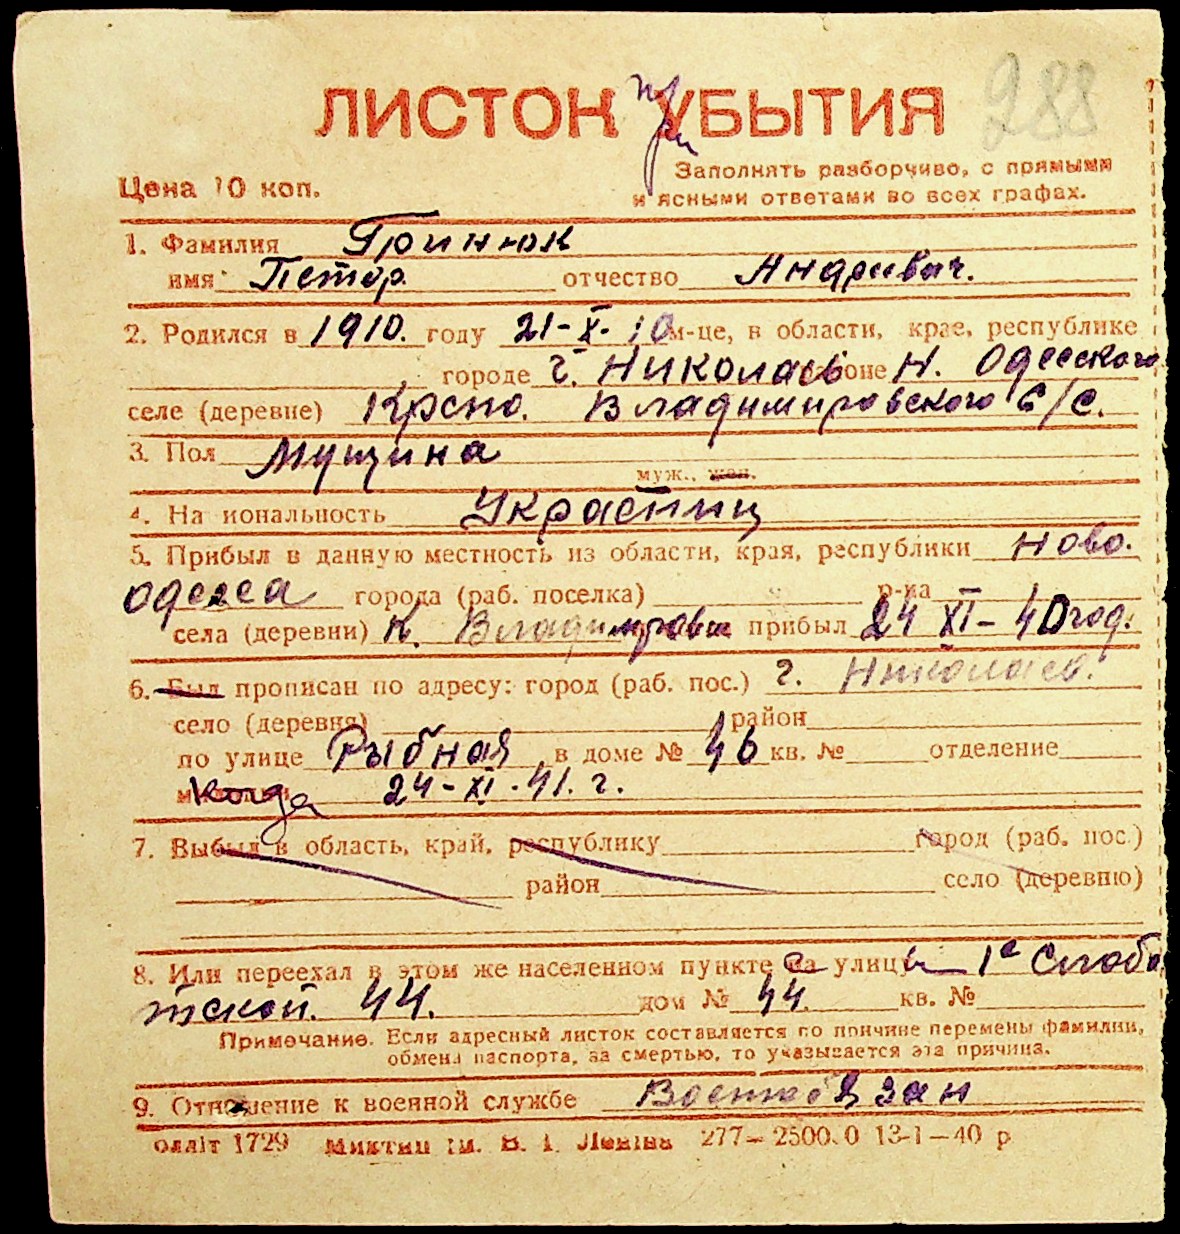 ЛИСТОК УБЫТИЯ
при
288
Цена 10 коп.
Заполнять разборчиво, с прямыми
и ясными ответами во всех графах.
1. Фамилия Гринюк
имя Петор. отчество Андреевич.
2. Родился в 1910. году 21-X-10 м-це, в области, крае, республике
городе г. Николаев районе Н. Одесского
селе (деревне) Красно. Владимировского С/с.
3. Пол Мущина
муж., жен.
4. Национальность Украениц
5. Прибыл в данную местность из области, края, республики Ново.
Одесса города (раб. поселка) р-на
села (деревни) К. Владимровки прибыл 24 XI-40 год.
6. Был прописан по адресу: город (раб. пос.) г. Николаев.
село (деревня) район
по улице Рыбная в доме № 46 кв. № отделение
милиции Когда 24-XI-41. г.
7. Выбыл в область, край, республику город (раб. пос.)
район село (деревню)
8. Или переехал в этом же населенном пункте с улицы 1а Слобо
тской. 44. дом № 44. кв. №
Примечание. Если адресный листок составляется по причине перемены фамилии,
обмена паспорта, за смертью, то указывается эта причина.
9. Отношение к военной службе Военнобязан
Оллiт 1729 Миктип iм. В. I. Ленiна 277—2500.0 13-1—40 р